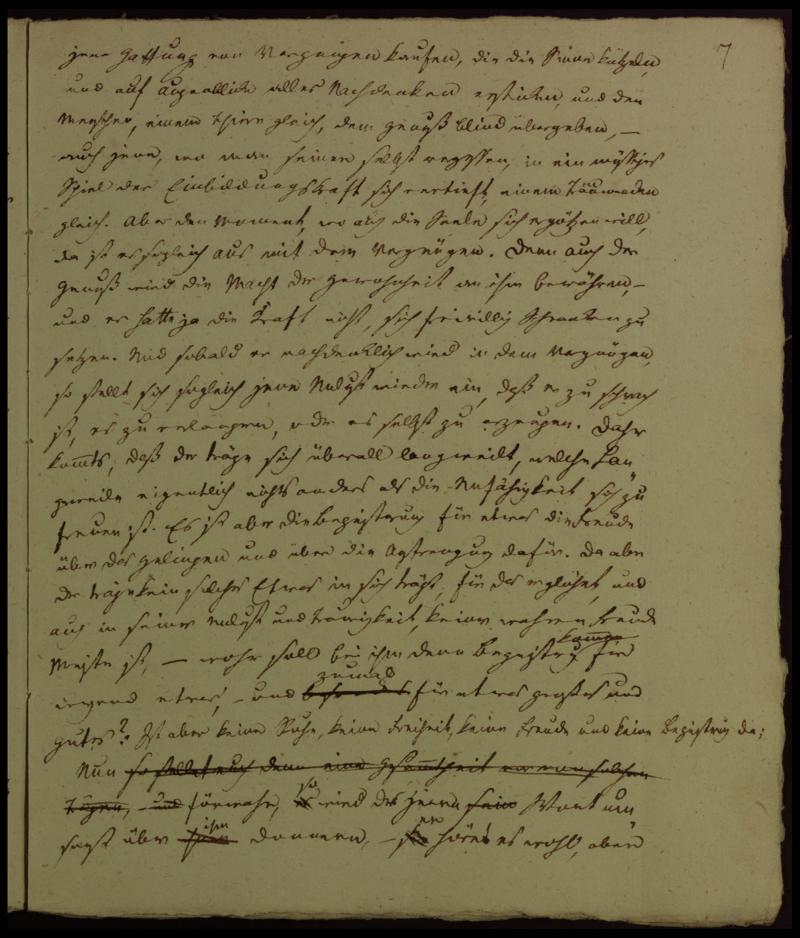 7
jene Gattung von Vergnügen kaufen, die die Sinne kützeln,
und auf Augenblicke alles Nachdenken ersticken und den
Menschen, einem Thiere gleich, dem Genuß blind übergeben, —
auch jene, wo man seiner selbst vergessen, in ein müssiges
Spiel der Einbildungskraft sich vertieft, einem Träumenden
gleich. Aber den Moment, wo auch die Seele sich ergötzen will,
da ist es sogleich aus mit dem Vergnügen. Denn auch der
Genuß wird die Macht der Gewohnheit an ihm bewähren, —
und er hatte ja die Kraft nicht, sich freiwillig Schranken zu
setzen. Und sobald er nachdenklich wird in dem Vergnügen,
so stellt sich sogleich jene Unlust wieder ein, daß er zu schwach
ist, es zu verlängern, oder es selbst zu erzeugen. Daher
kommts, daß der träge sich überall langweilt, welche Lan
geweile eigentlich nichts anders als die Unfähigkeit sich zu
freuen ist. Es ist aber die Begeisterung für etwas die Freude
über das Gelingen und über die Anstrengung dafür. Da aber
der träge kein solches Etwas in sich trägt, für das er glühet, und
auch in seiner Unlust und Traurigkeit, keiner wahren Freude
Meister ist, — woher soll bei ihm denn Begeistrung kommen für
irgend etwas, — und besonders zumal für etwas großes und
gutes? Ist aber keine Ruhe, keine Freiheit, keine Freude und keine Begeistrung da;
Nun so stellet euch denn eine Gesammtheit von solchen
Trägen, und fürwahr, so wird des Herrn sein Wort um
sonst über ihm donnern, — er höret es wohl, aber